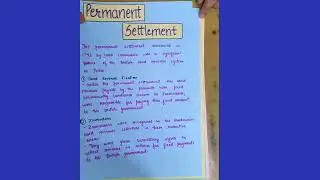 Permanent
Settlement
The permanent settlement introduced in
by Lord Cornwallis was a significant
feature of the British land revenue system
in India.
① Land Revenue Fixation
the permanent settlement the land
revenue payable by the peasants was fixed
known as Zamindars
were responsible for paying this fixed amount
to the British government
② Zamindars
Zamindars were recognised as the
land revenue collectors in their respective
areas.
They were given hereditary rights to
collect revenue in return for fixed payments
to the British government.